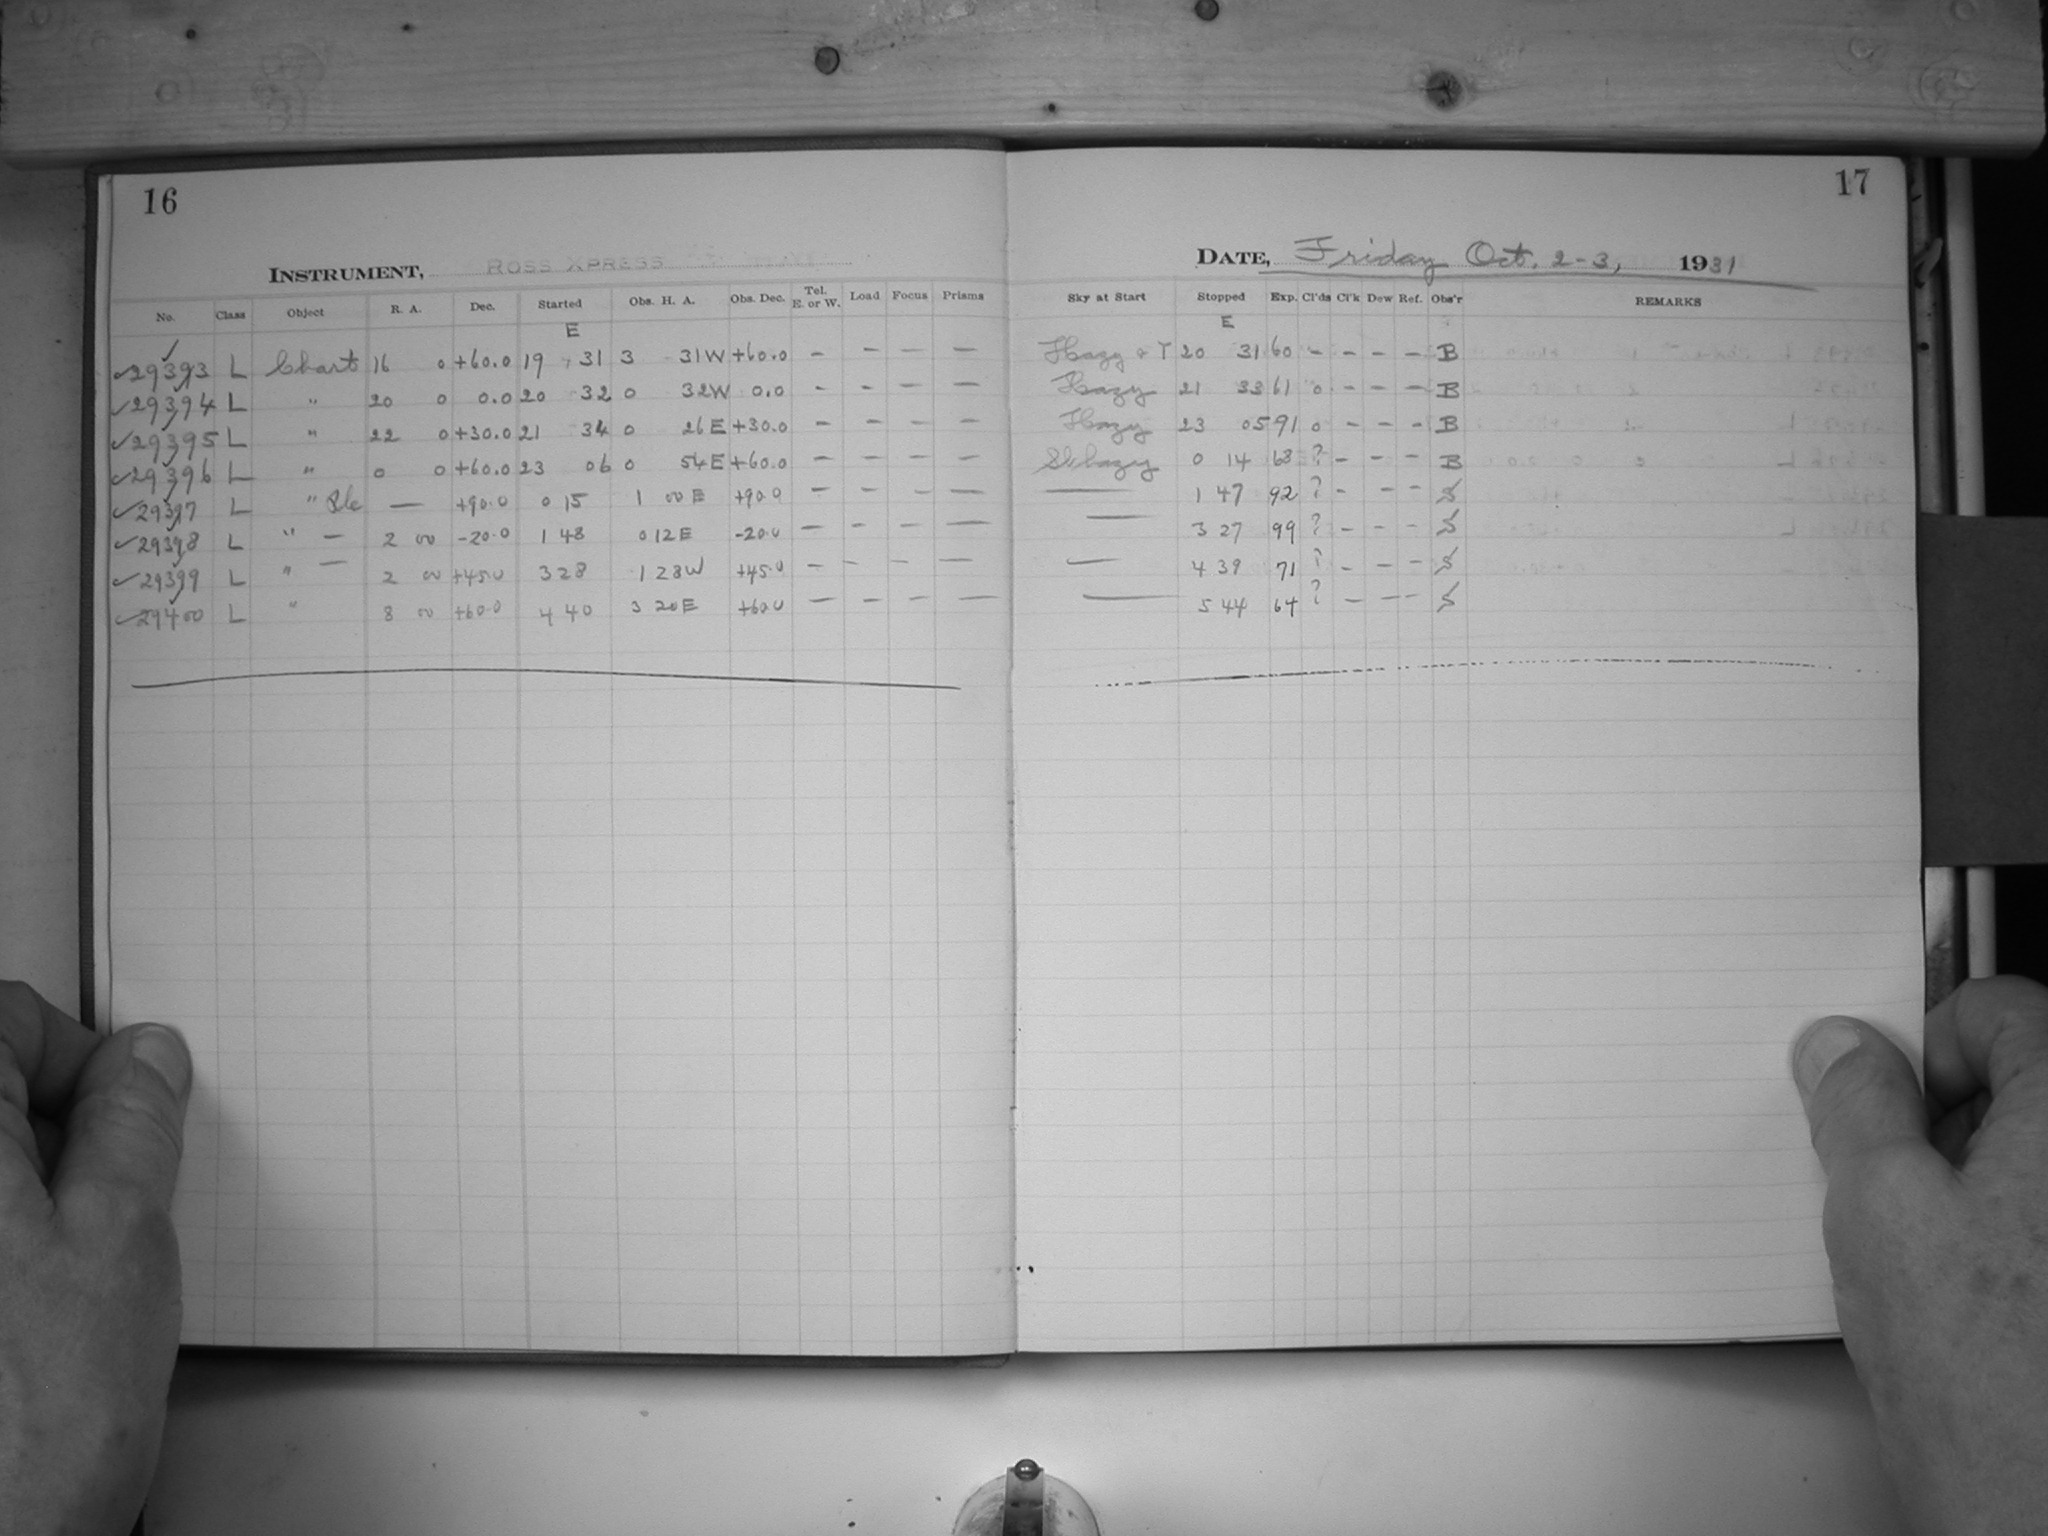 16
INSTRUMENT, ROSS XPRESS
No. Class Object R. A. Dec. Started Obs. H. A. Obs. Dec. Tel. E. or W. Load Focus Prisms
E
✓29393 L Chart 16 0 +60.0 19 31 3 31W +60.0 – – – –
✓29394 L " 20 0 0.0 20 32 0 32W 0.0 – – – –
✓29395 L " 22 0 +30.0 21 34 0 26E +30.0 – – – –
✓29396 L " 0 0 +60.0 23 06 0 54E +60.0 – – – –
✓29397 L " — +90.0 0 15 1 00E +90.0 – – – –
✓29398 L " — 2 00 -20.0 1 48 0 12E -20.0 – – – –
✓29399 L " — 2 00 +45.0 3 28 1 28W +45.0 – – – –
✓29400 L " 8 00 +60.0 4 40 3 20E +60.0 – – – –
17
DATE, Friday Oct. 2-3, 1931
Sky at Start Stopped Exp. Cl'ds Cl'k Dew Ref. Obs'r REMARKS
E
Hazy & T 20 31 60 – – – – B
Hazy 21 33 61 0 – – – B
Hazy 23 05 91 0 – – – B
Sl hazy 0 14 68 ? – – – B
— 1 47 92 ? – – – S
— 3 27 99 ? – – – S
— 4 39 71 ? – – – S
— 5 44 64 ? – – – S